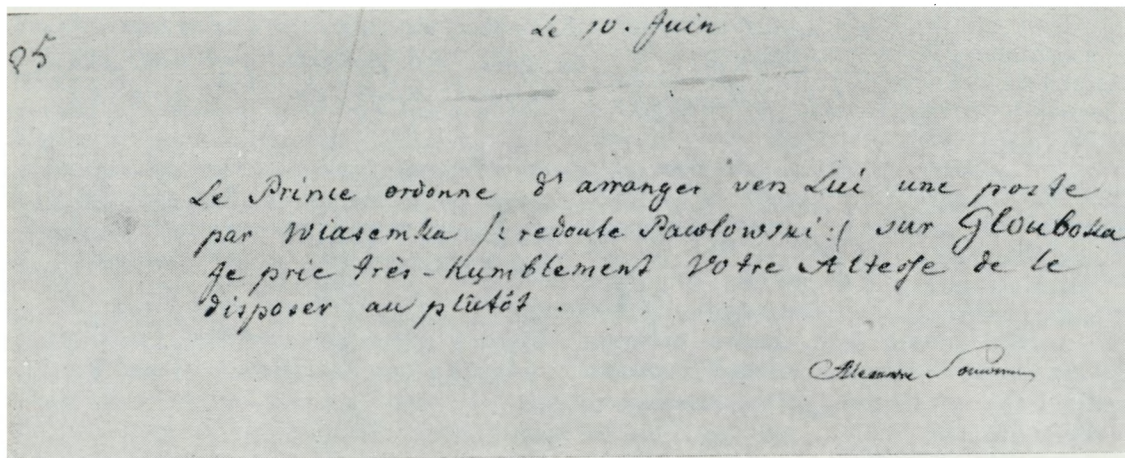 Le 10. Juin
25
Le Prince ordonne d'arranger vers Lui une poste
par Wiasemka /: redoute Pawlowski :/ sur Glouboka
Je prie très-humblement Votre Altesse de le
disposer au plûtôt .
Alexandre Souworow